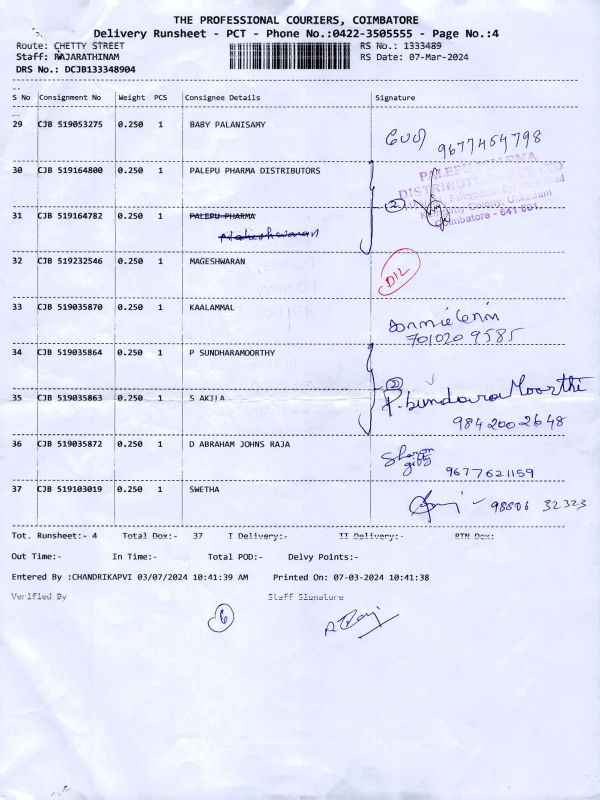 THE PROFESSIONAL COURIERS, COIMBATORE
Delivery Runsheet - PCT - Phone No.:0422-3505555 - Page No.:4
Route: CHETTY STREET RS No.: 1333489
Staff: RAJARATHINAM RS Date: 07-Mar-2024
DRS No.: DCJB133348904
S No Consignment No Weight PCS Consignee Details Signature
29 CJB 519053275 0.250 1 BABY PALANISAMY
9677454798
30 CJB 519164800 0.250 1 PALEPU PHARMA DISTRIBUTORS
PALEPU PHARMA
31 CJB 519164782 0.250 1 PALEPU PHARMA (2)
Coimbatore - 641 601.
Maheshwaran
32 CJB 519232546 0.250 1 MAGESHWARAN D/L
33 CJB 519035870 0.250 1 KAALAMMAL
701020 9585
34 CJB 519035864 0.250 1 P SUNDHARAMOORTHY
(2) P. Sundara Moorthi
35 CJB 519035863 0.250 1 S AKILA
984 2002648
36 CJB 519035872 0.250 1 D ABRAHAM JOHNS RAJA
9677621159
37 CJB 519103019 0.250 1 SWETHA
- 98606 32323
Tot. Runsheet:- 4 Total Dox:- 37 I Delivery:- II Delivery:- RTN Dox:
Out Time:- In Time:- Total POD:- Delvy Points:-
Entered By :CHANDRIKAPVI 03/07/2024 10:41:39 AM Printed On: 07-03-2024 10:41:38
Verified By Staff Signature
6